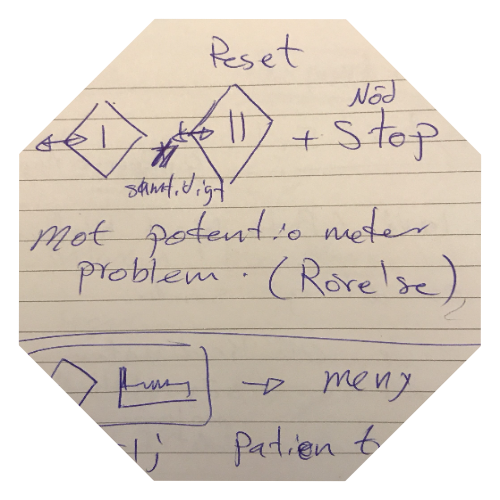 Reset
I II + Nöd Stop
samtidigt
Mot potentiometer
problem. (Rörelse)
→ meny
lj patient